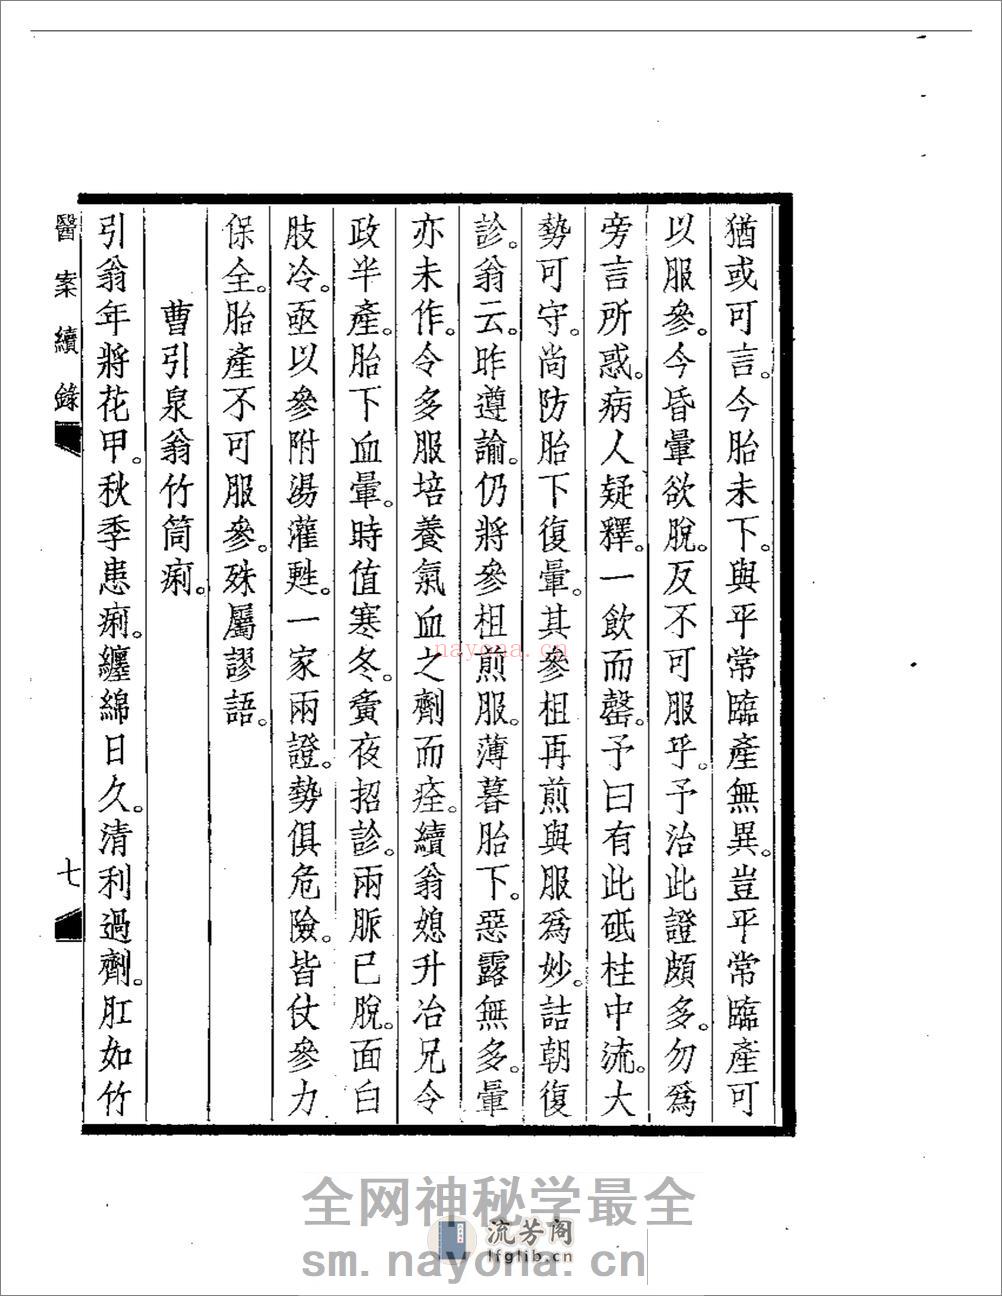 猶或可言。今胎未下。與平常臨產無異。豈平常臨產可
以服參。今昏暈欲脫。反不可服乎。予治此證頗多。勿爲
旁言所惑。病人疑釋。一飲而罄。予曰有此砥柱中流。大
勢可守。尚防胎下復暈。其參柤再煎與服爲妙。詰朝復
診。翁云。昨遵諭。仍將參柤煎服。薄暮胎下。惡露無多。暈
亦未作。令多服培養氣血之劑而痊。續翁媳升冶兄令
政半產。胎下血暈。時值寒冬。夤夜招診。兩脈已脫。面白
肢冷。亟以參附湯灌甦。一家兩證。勢俱危險。皆仗參力
保全。胎產不可服參。殊屬謬語。
曹引泉翁竹筒痢。
引翁年將花甲。秋季患痢。纏綿日久。清利過劑。肛如竹
醫案續錄
七
nayona.cn
全网神秘学最全
流芳阁
lfglib.cn
sm.nayona.cn